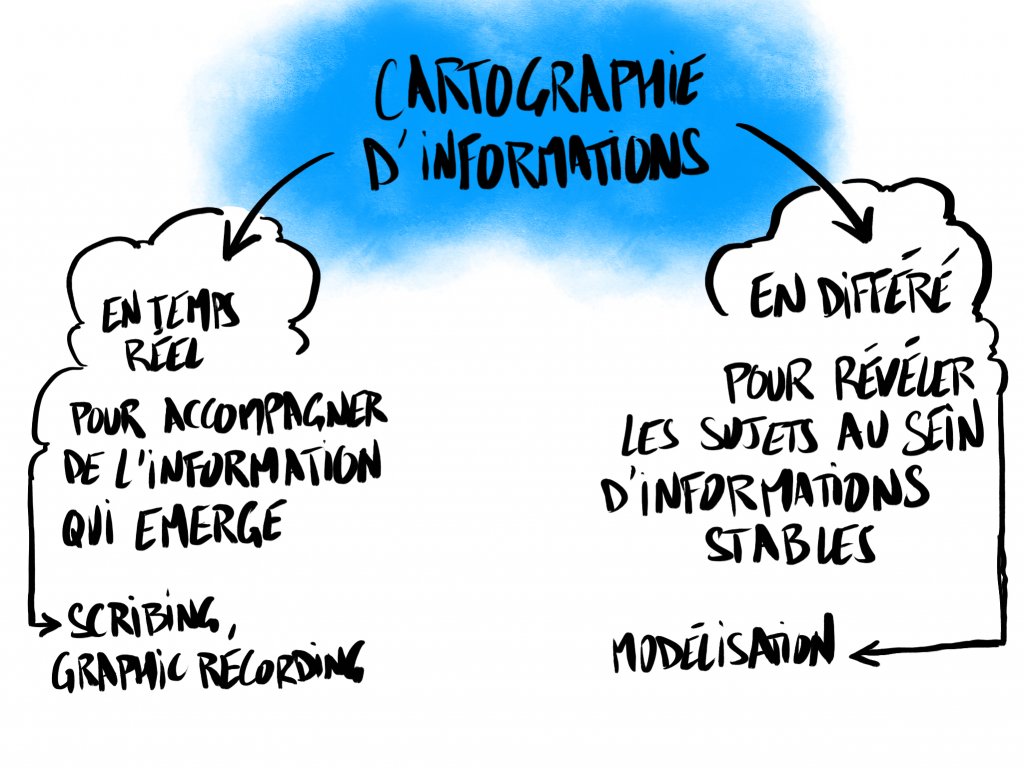 CARTOGRAPHIE
D'INFORMATIONS
EN TEMPS
RÉEL
POUR ACCOMPAGNER
DE L'INFORMATION
QUI EMERGE
SCRIBING,
GRAPHIC RECORDING
EN DIFFÉRÉ
POUR RÉVÉLER
LES SUJETS AU SEIN
D'INFORMATIONS
STABLES
MODÉLISATION